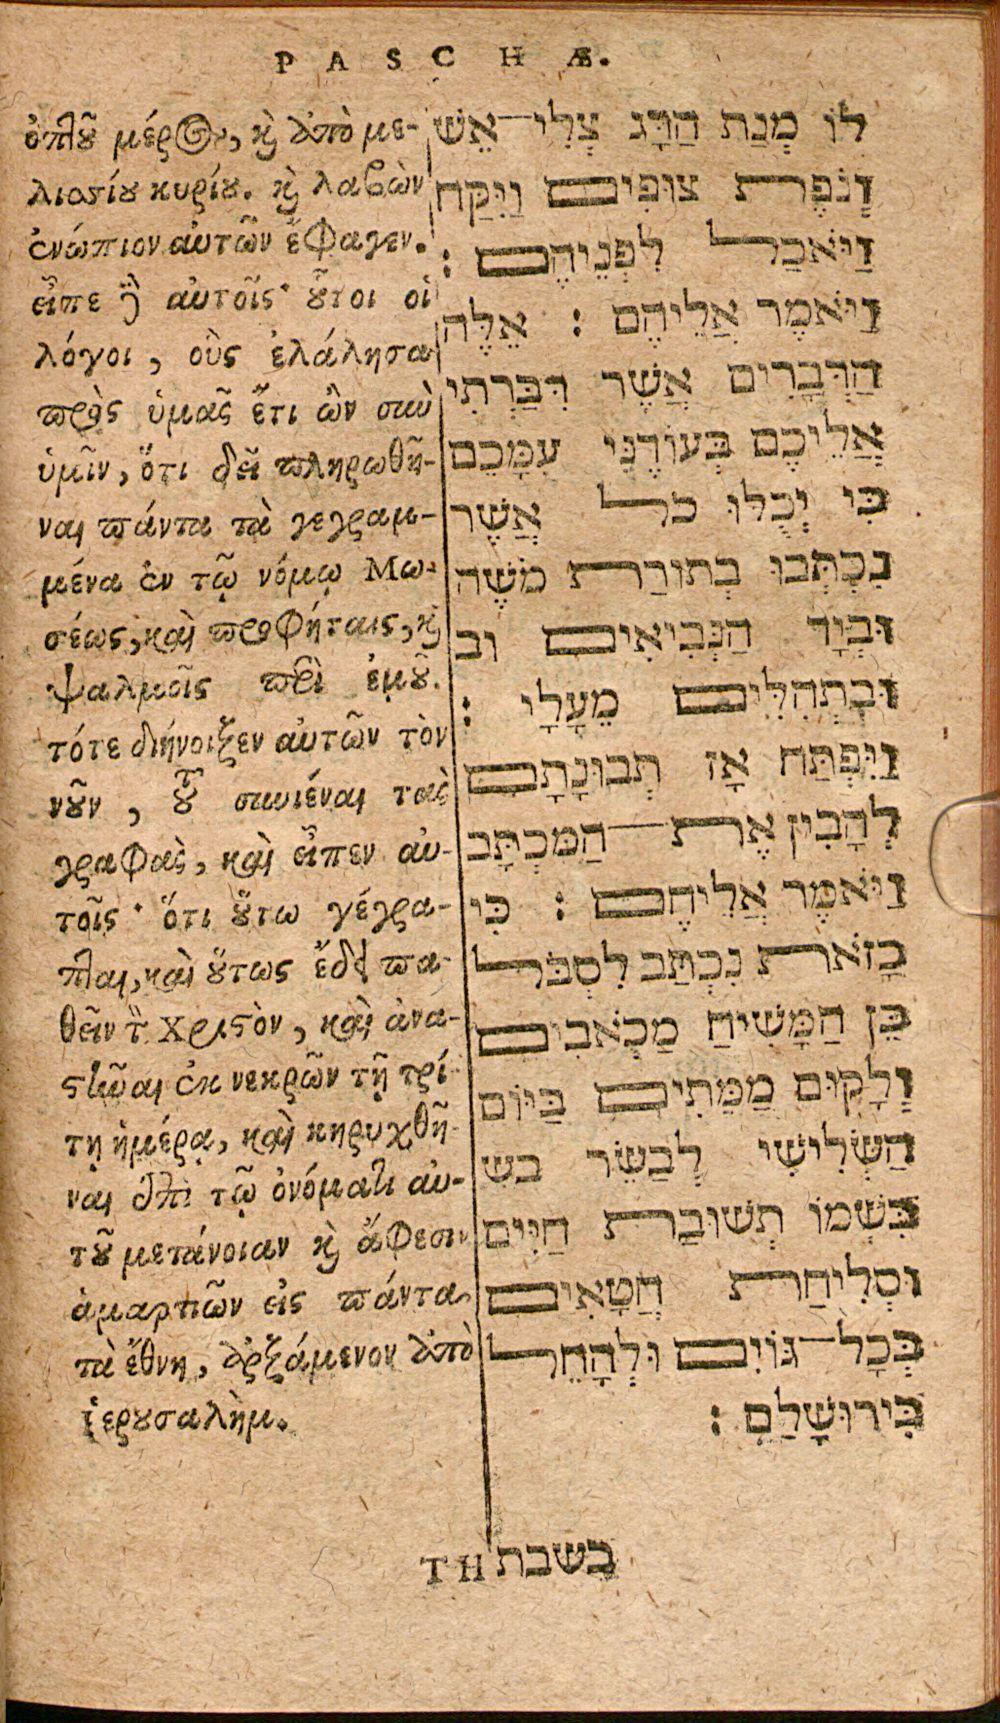 PASCHÆ.
ὀπτοῦ μέρος, καὶ ἀπὸ με-
λισσίου κυρίου. καὶ λαβὼν
ἐνώπιον αὐτῶν ἔφαγεν.
εἶπε δὲ αὐτοῖς· οὗτοι οἱ
λόγοι, οὓς ἐλάλησα
πρὸς ὑμᾶς ἔτι ὢν σὺν
ὑμῖν, ὅτι δεῖ πληρωθῆ-
ναι πάντα τὰ γεγραμ-
μένα ἐν τῷ νόμῳ Μω-
σέως, καὶ προφήταις, καὶ
ψαλμοῖς περὶ ἐμοῦ.
τότε διήνοιξεν αὐτῶν τὸν
νοῦν, τοῦ συνιέναι τὰς
γραφὰς, καὶ εἶπεν αὐ-
τοῖς· ὅτι οὕτω γέγρα-
πται, καὶ οὕτως ἔδει πα-
θεῖν τὸν Χριστὸν, καὶ ἀνα-
στῆναι ἐκ νεκρῶν τῇ τρί-
τῃ ἡμέρᾳ, καὶ κηρυχθῆ-
ναι ἐπὶ τῷ ὀνόματι αὐ-
τοῦ μετάνοιαν καὶ ἄφεσιν
ἁμαρτιῶν εἰς πάντα
τὰ ἔθνη, ἀρξάμενον ἀπὸ
ἱερουσαλὴμ.
לוֹ מְנַת הַדָּג צְלִי־אֵשׁ
וְנֹפֶת צוּפִים וַיִּקַּח
וַיֹּאכַל לִפְנֵיהֶם :
וַיֹּאמֶר אֲלֵיהֶם : אֵלֶּה
הַדְּבָרִים אֲשֶׁר דִּבַּרְתִּי
אֲלֵיכֶם בְּעוֹדֶנִּי עִמָּכֶם
כִּי יְכֻלּוּ כֹל אֲשֶׁר
נִכְתְּבוּ בְתוֹרַת מֹשֶׁה
וּבְיָד הַנְּבִיאִים וב
וּבִתְהִלִּים מֵעָלָי :
וַיִּפְתַּח אָז תְּבוּנָתָם
לְהָבִין אֶת־הַמִּכְתָּב
וַיֹּאמֶר אֲלֵיהֶם : כִּי
כָזֹאת נִכְתַּב לִסְבֹּל
כֵּן הַמָּשִׁיחַ מַכְאֹבִים
וְלָקוּם מִמֵּתִים בַּיּוֹם
הַשְּׁלִישִׁי לְבַשֵּׂר בש
בִּשְׁמוֹ תְּשׁוּבַת חַיִּים
וּסְלִיחַת חֲטָאִים
בְּכָל־גּוֹיִם וּלְהָחֵל
בִּירוּשָׁלַםִ :
TH בשבת